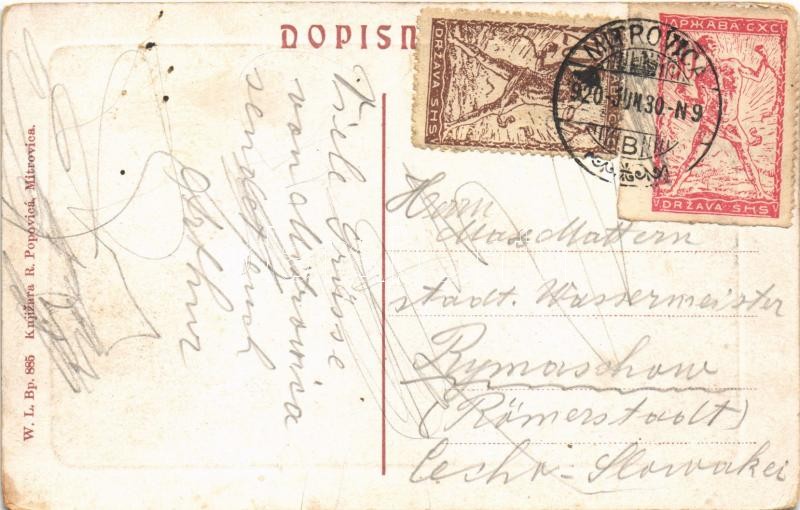 DOPISN
DRŽAVA SHS
ДРЖАВА СХС
DRŽAVA SHS
MITROVICA
920 JUN. 30-N9
Viele Grüsse
von Mitrovica
sendet euch
Herrn
Max Mattern
stadt. Wassermeister
Rymaschow
(Römerstadt)
Cecho-Slowakei
W. L. Bp. 885 Knjižara R. Popovića, Mitrovica.